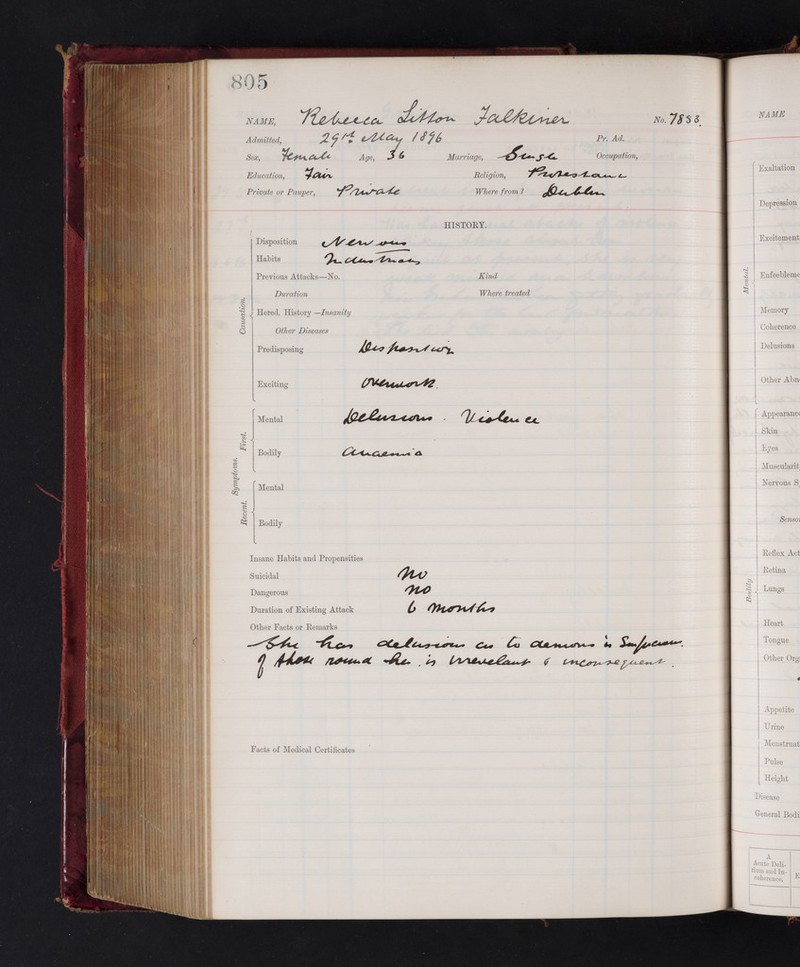 805
NAME, Rebecca Litton Falkiner No. 7883.
Admitted, 29th May 1896 Pr. Ad.
Sex, Female Age, 36 Marriage, Single Occupation,
Education, Fair Religion, Protestant
Private or Pauper, Private Where from? Dublin
HISTORY.
Causation.
Disposition Nervous
Habits Industrious
Previous Attacks—No. Kind
Duration Where treated
Hered. History—Insanity
Other Diseases
Predisposing Disposition
Exciting Overwork.
Symptoms.
First.
Mental Delusions - Violence
Bodily Anaemia
Recent.
Mental
Bodily
Insane Habits and Propensities
Suicidal No
Dangerous No
Duration of Existing Attack 6 Months
Other Facts or Remarks
She has delusions as to demons is Suspicious.
of those round her. is irrevelant & inconsequent.
Facts of Medical Certificates
NAME
Mental.
Exaltation
Depression
Excitement
Enfeebleme
Memory
Coherence
Delusions
Other Abn
Bodily
Appearance
Skin
Eyes
Muscularit
Nervous S
Senso
Reflex Act
Retina
Lungs
Heart
Tongue
Other Org
Appetite
Urine
Menstruat
Pulse
Height
Disease
General Bodi
A
Acute Deli-
rium and In-
coherence.
E